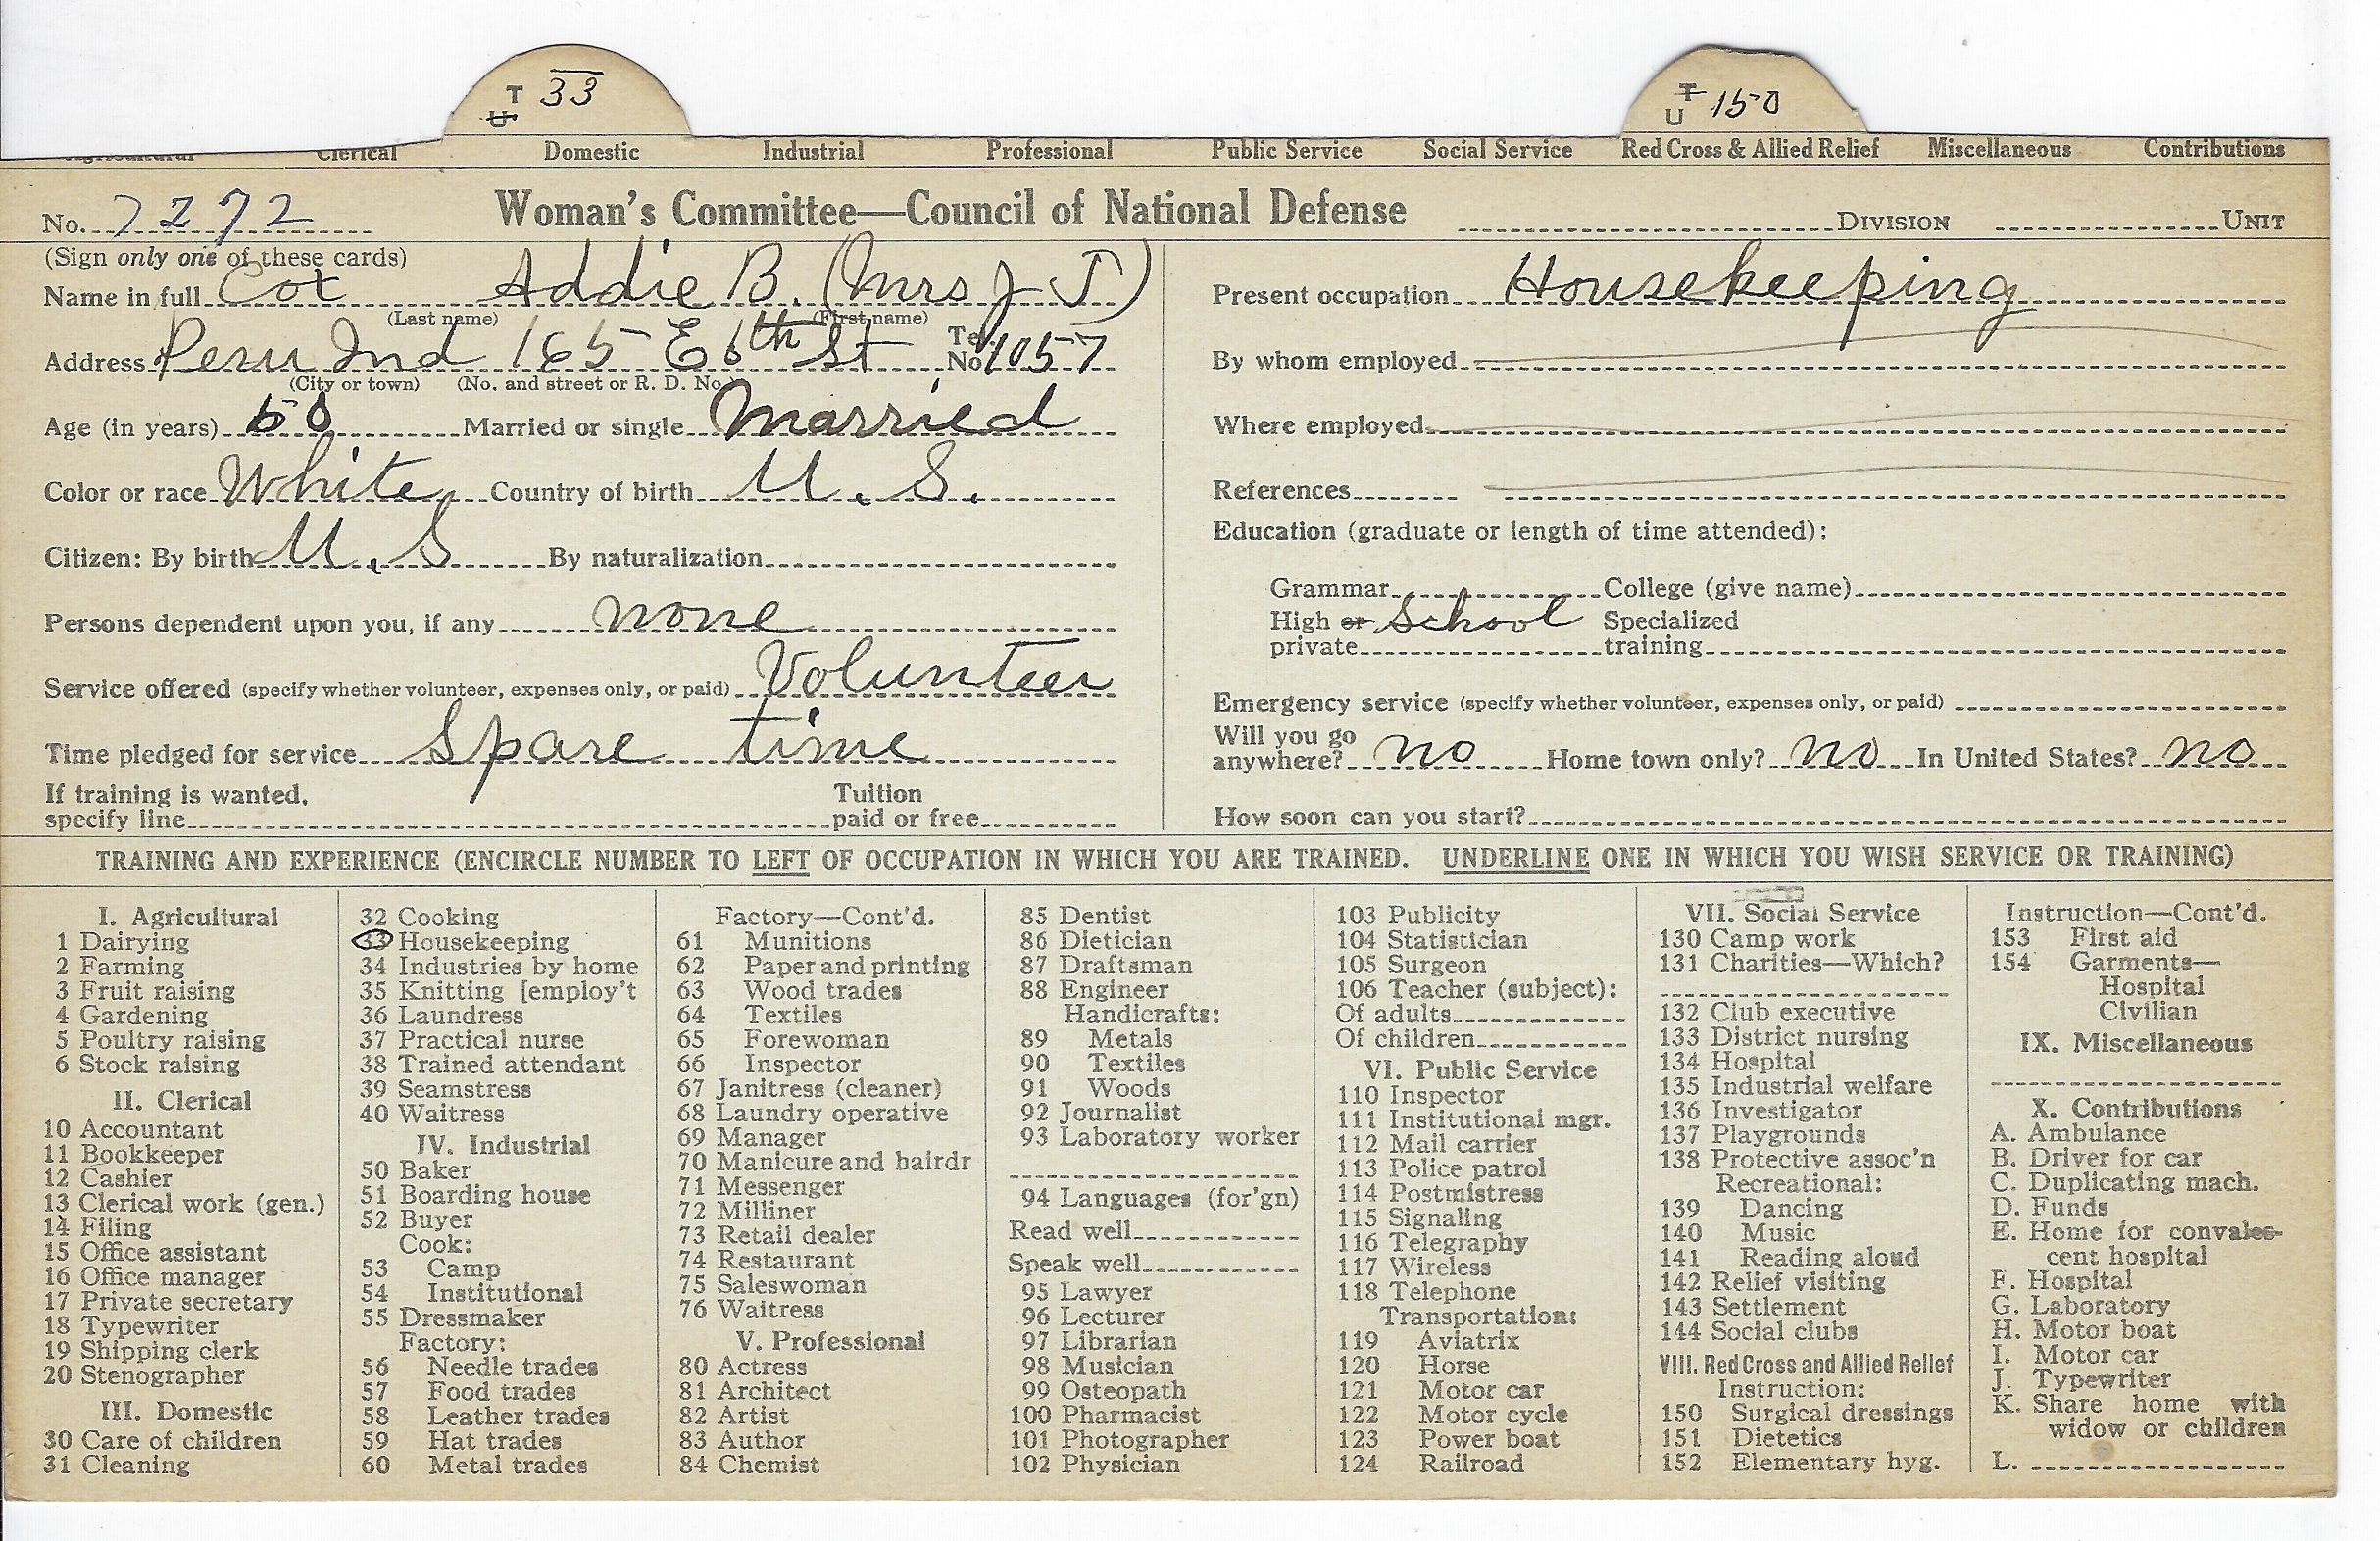 T 33
U
T 150
U
Agricultural Clerical Domestic Industrial Professional Public Service Social Service Red Cross & Allied Relief Miscellaneous Contributions
No. 7272 Woman's Committee—Council of National Defense DIVISION UNIT
(Sign only one of these cards)
Name in full Cox Addie B. (Mrs J T)
(Last name) (First name)
Address Peru Ind 165 E 6th St Tel. No 1057
(City or town) (No. and street or R. D. No.)
Age (in years) Married or single Married
Color or race White Country of birth U. S.
Citizen: By birth U. S By naturalization
Persons dependent upon you, if any none
Service offered (specify whether volunteer, expenses only, or paid) Volunteer
Time pledged for service Spare time
If training is wanted, specify line Tuition paid or free
Present occupation Housekeeping
By whom employed
Where employed
References
Education (graduate or length of time attended):
Grammar College (give name)
High or School Specialized
private training
Emergency service (specify whether volunteer, expenses only, or paid)
Will you go
anywhere? no Home town only? no In United States? no
How soon can you start?
TRAINING AND EXPERIENCE (ENCIRCLE NUMBER TO LEFT OF OCCUPATION IN WHICH YOU ARE TRAINED. UNDERLINE ONE IN WHICH YOU WISH SERVICE OR TRAINING)
I. Agricultural
1 Dairying
2 Farming
3 Fruit raising
4 Gardening
5 Poultry raising
6 Stock raising
II. Clerical
10 Accountant
11 Bookkeeper
12 Cashier
13 Clerical work (gen.)
14 Filing
15 Office assistant
16 Office manager
17 Private secretary
18 Typewriter
19 Shipping clerk
20 Stenographer
III. Domestic
30 Care of children
31 Cleaning
32 Cooking
33 Housekeeping
34 Industries by home
35 Knitting [employ't
36 Laundress
37 Practical nurse
38 Trained attendant
39 Seamstress
40 Waitress
IV. Industrial
50 Baker
51 Boarding house
52 Buyer
Cook:
53 Camp
54 Institutional
55 Dressmaker
Factory:
56 Needle trades
57 Food trades
58 Leather trades
59 Hat trades
60 Metal trades
Factory—Cont'd.
61 Munitions
62 Paper and printing
63 Wood trades
64 Textiles
65 Forewoman
66 Inspector
67 Janitress (cleaner)
68 Laundry operative
69 Manager
70 Manicure and hairdr
71 Messenger
72 Milliner
73 Retail dealer
74 Restaurant
75 Saleswoman
76 Waitress
V. Professional
80 Actress
81 Architect
82 Artist
83 Author
84 Chemist
85 Dentist
86 Dietician
87 Draftsman
88 Engineer
Handicrafts:
89 Metals
90 Textiles
91 Woods
92 Journalist
93 Laboratory worker
94 Languages (for'gn)
Read well
Speak well
95 Lawyer
96 Lecturer
97 Librarian
98 Musician
99 Osteopath
100 Pharmacist
101 Photographer
102 Physician
103 Publicity
104 Statistician
105 Surgeon
106 Teacher (subject):
Of adults
Of children
VI. Public Service
110 Inspector
111 Institutional mgr.
112 Mail carrier
113 Police patrol
114 Postmistress
115 Signaling
116 Telegraphy
117 Wireless
118 Telephone
Transportation:
119 Aviatrix
120 Horse
121 Motor car
122 Motor cycle
123 Power boat
124 Railroad
VII. Social Service
130 Camp work
131 Charities—Which?
132 Club executive
133 District nursing
134 Hospital
135 Industrial welfare
136 Investigator
137 Playgrounds
138 Protective assoc'n
Recreational:
139 Dancing
140 Music
141 Reading aloud
142 Relief visiting
143 Settlement
144 Social clubs
VIII. Red Cross and Allied Relief
Instruction:
150 Surgical dressings
151 Dietetics
152 Elementary hyg.
Instruction—Cont'd.
153 First aid
154 Garments—
Hospital
Civilian
IX. Miscellaneous
X. Contributions
A. Ambulance
B. Driver for car
C. Duplicating mach.
D. Funds
E. Home for convales-
cent hospital
F. Hospital
G. Laboratory
H. Motor boat
I. Motor car
J. Typewriter
K. Share home with
widow or children
L.